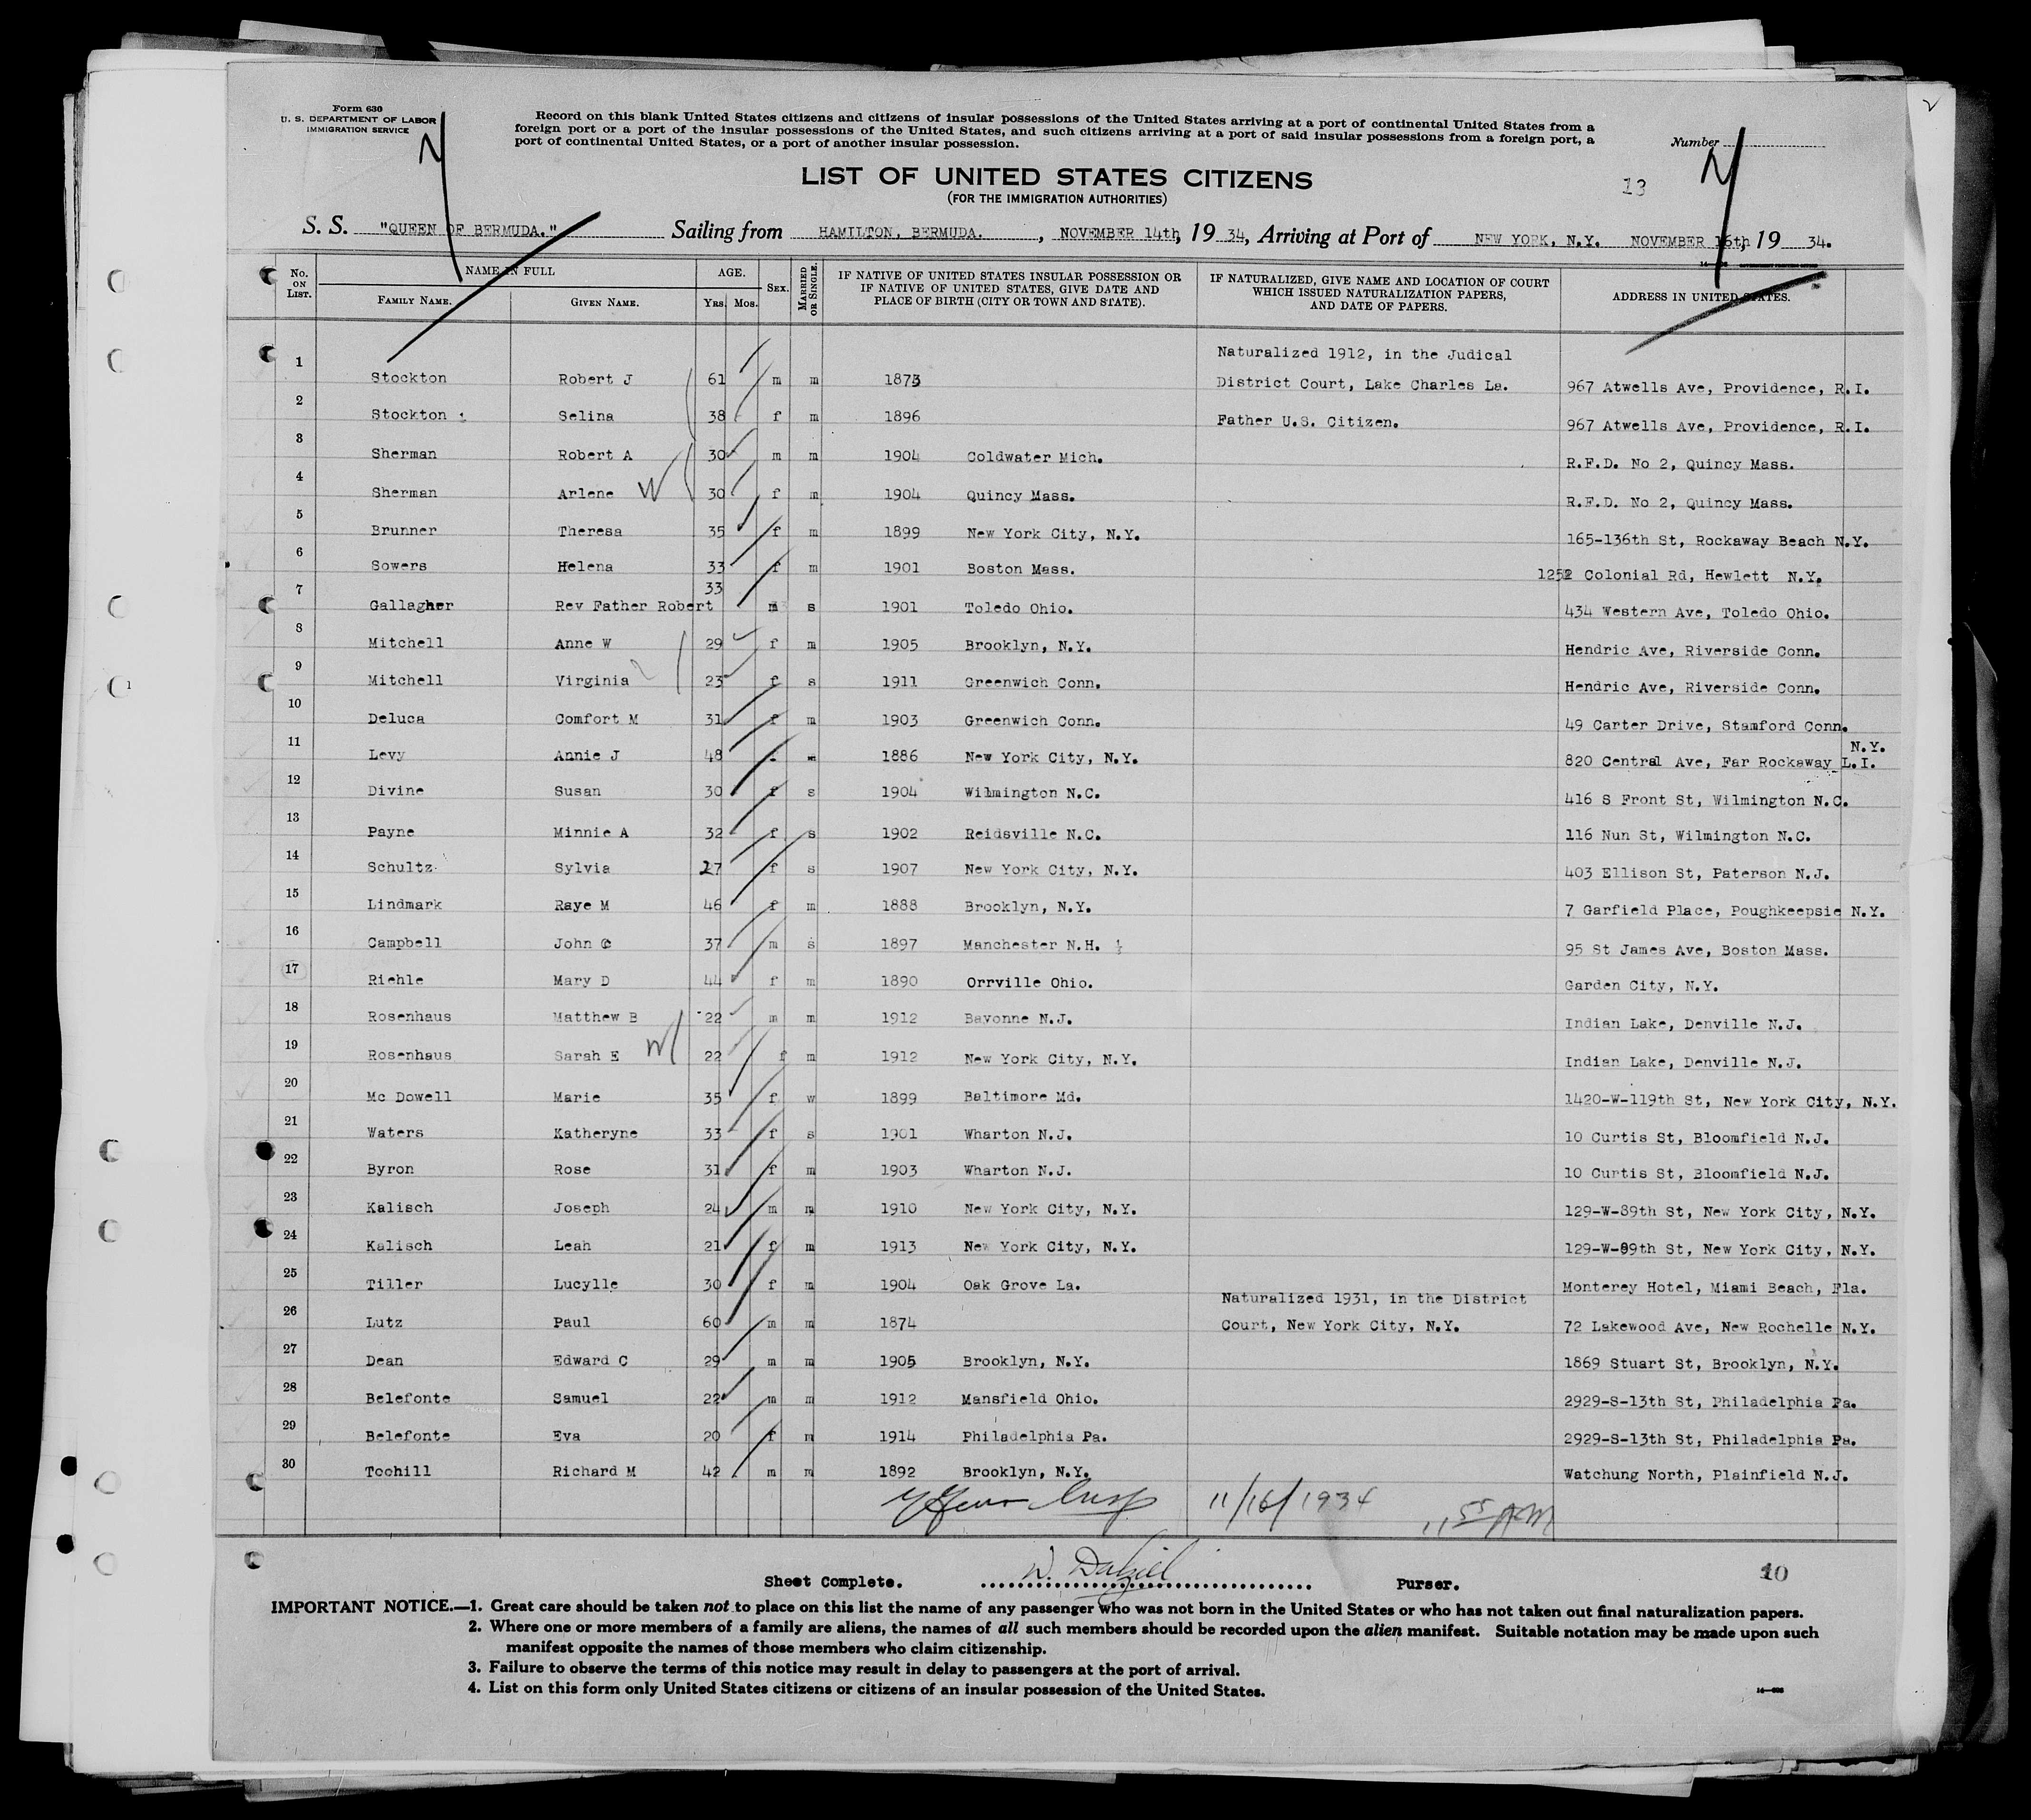 Form 630
U. S. DEPARTMENT OF LABOR
IMMIGRATION SERVICE
Record on this blank United States citizens and citizens of insular possessions of the United States arriving at a port of continental United States from a
foreign port or a port of the insular possessions of the United States, and such citizens arriving at a port of said insular possessions from a foreign port, a
port of continental United States, or a port of another insular possession.
Number
LIST OF UNITED STATES CITIZENS
(FOR THE IMMIGRATION AUTHORITIES)
13
S. S. "QUEEN OF BERMUDA." Sailing from HAMILTON, BERMUDA. , NOVEMBER 14th, 19 34, Arriving at Port of NEW YORK, N.Y. NOVEMBER 16th 19 34.
No. ON LIST. NAME IN FULL FAMILY NAME. GIVEN NAME. AGE. YRS. MOS. SEX. MARRIED OR SINGLE. IF NATIVE OF UNITED STATES INSULAR POSSESSION OR IF NATIVE OF UNITED STATES, GIVE DATE AND PLACE OF BIRTH (CITY OR TOWN AND STATE). IF NATURALIZED, GIVE NAME AND LOCATION OF COURT WHICH ISSUED NATURALIZATION PAPERS, AND DATE OF PAPERS. ADDRESS IN UNITED STATES.
Naturalized 1912, in the Judical
1 Stockton Robert J 61 m m 1873 District Court, Lake Charles La. 967 Atwells Ave, Providence, R.I.
2 Stockton Selina 38 f m 1896 Father U.S. Citizen. 967 Atwells Ave, Providence, R.I.
3 Sherman Robert A 30 m m 1904 Coldwater Mich. R.F.D. No 2, Quincy Mass.
4 Sherman Arlene W 30 f m 1904 Quincy Mass. R.F.D. No 2, Quincy Mass.
5 Brunner Theresa 35 f m 1899 New York City, N.Y. 165-136th St, Rockaway Beach N.Y.
6 Sowers Helena 33 f m 1901 Boston Mass. 1252 Colonial Rd, Hewlett N.Y.
7 Gallagher Rev Father Robert 33 m s 1901 Toledo Ohio. 434 Western Ave, Toledo Ohio.
8 Mitchell Anne W 29 f m 1905 Brooklyn, N.Y. Hendric Ave, Riverside Conn.
9 Mitchell Virginia 23 f s 1911 Greenwich Conn. Hendric Ave, Riverside Conn.
10 Deluca Comfort M 31 f m 1903 Greenwich Conn. 49 Carter Drive, Stamford Conn.
11 Levy Annie J 48 f m 1886 New York City, N.Y. 820 Central Ave, Far Rockaway L.I. N.Y.
12 Divine Susan 30 f s 1904 Wilmington N.C. 416 S Front St, Wilmington N.C.
13 Payne Minnie A 32 f s 1902 Reidsville N.C. 116 Nun St, Wilmington N.C.
14 Schultz Sylvia 27 f s 1907 New York City, N.Y. 403 Ellison St, Paterson N.J.
15 Lindmark Raye M 46 f m 1888 Brooklyn, N.Y. 7 Garfield Place, Poughkeepsie N.Y.
16 Campbell John C 37 m s 1897 Manchester N.H. 95 St James Ave, Boston Mass.
17 Riehle Mary D 44 f m 1890 Orrville Ohio. Garden City, N.Y.
18 Rosenhaus Matthew B 22 m m 1912 Bayonne N.J. Indian Lake, Denville N.J.
19 Rosenhaus Sarah E W 22 f m 1912 New York City, N.Y. Indian Lake, Denville N.J.
20 Mc Dowell Marie 35 f w 1899 Baltimore Md. 1420-W-119th St, New York City, N.Y.
21 Waters Katheryne 33 f s 1901 Wharton N.J. 10 Curtis St, Bloomfield N.J.
22 Byron Rose 31 f m 1903 Wharton N.J. 10 Curtis St, Bloomfield N.J.
23 Kalisch Joseph 24 m m 1910 New York City, N.Y. 129-W-89th St, New York City, N.Y.
24 Kalisch Leah 21 f m 1913 New York City, N.Y. 129-W-89th St, New York City, N.Y.
25 Tiller Lucylle 30 f m 1904 Oak Grove La. Monterey Hotel, Miami Beach, Fla.
Naturalized 1931, in the District
26 Lutz Paul 60 m m 1874 Court, New York City, N.Y. 72 Lakewood Ave, New Rochelle N.Y.
27 Dean Edward C 29 m m 1905 Brooklyn, N.Y. 1869 Stuart St, Brooklyn, N.Y.
28 Belefonte Samuel 22 m m 1912 Mansfield Ohio. 2929-S-13th St, Philadelphia Pa.
29 Belefonte Eva 20 f m 1914 Philadelphia Pa. 2929-S-13th St, Philadelphia Pa.
30 Toohill Richard M 42 m m 1892 Brooklyn, N.Y. Watchung North, Plainfield N.J.
11/16/1934 11 55 AM
Sheet Complete. W. Dalziel Purser. 10
IMPORTANT NOTICE.—1. Great care should be taken not to place on this list the name of any passenger who was not born in the United States or who has not taken out final naturalization papers.
2. Where one or more members of a family are aliens, the names of all such members should be recorded upon the alien manifest. Suitable notation may be made upon such
manifest opposite the names of those members who claim citizenship.
3. Failure to observe the terms of this notice may result in delay to passengers at the port of arrival.
4. List on this form only United States citizens or citizens of an insular possession of the United States.